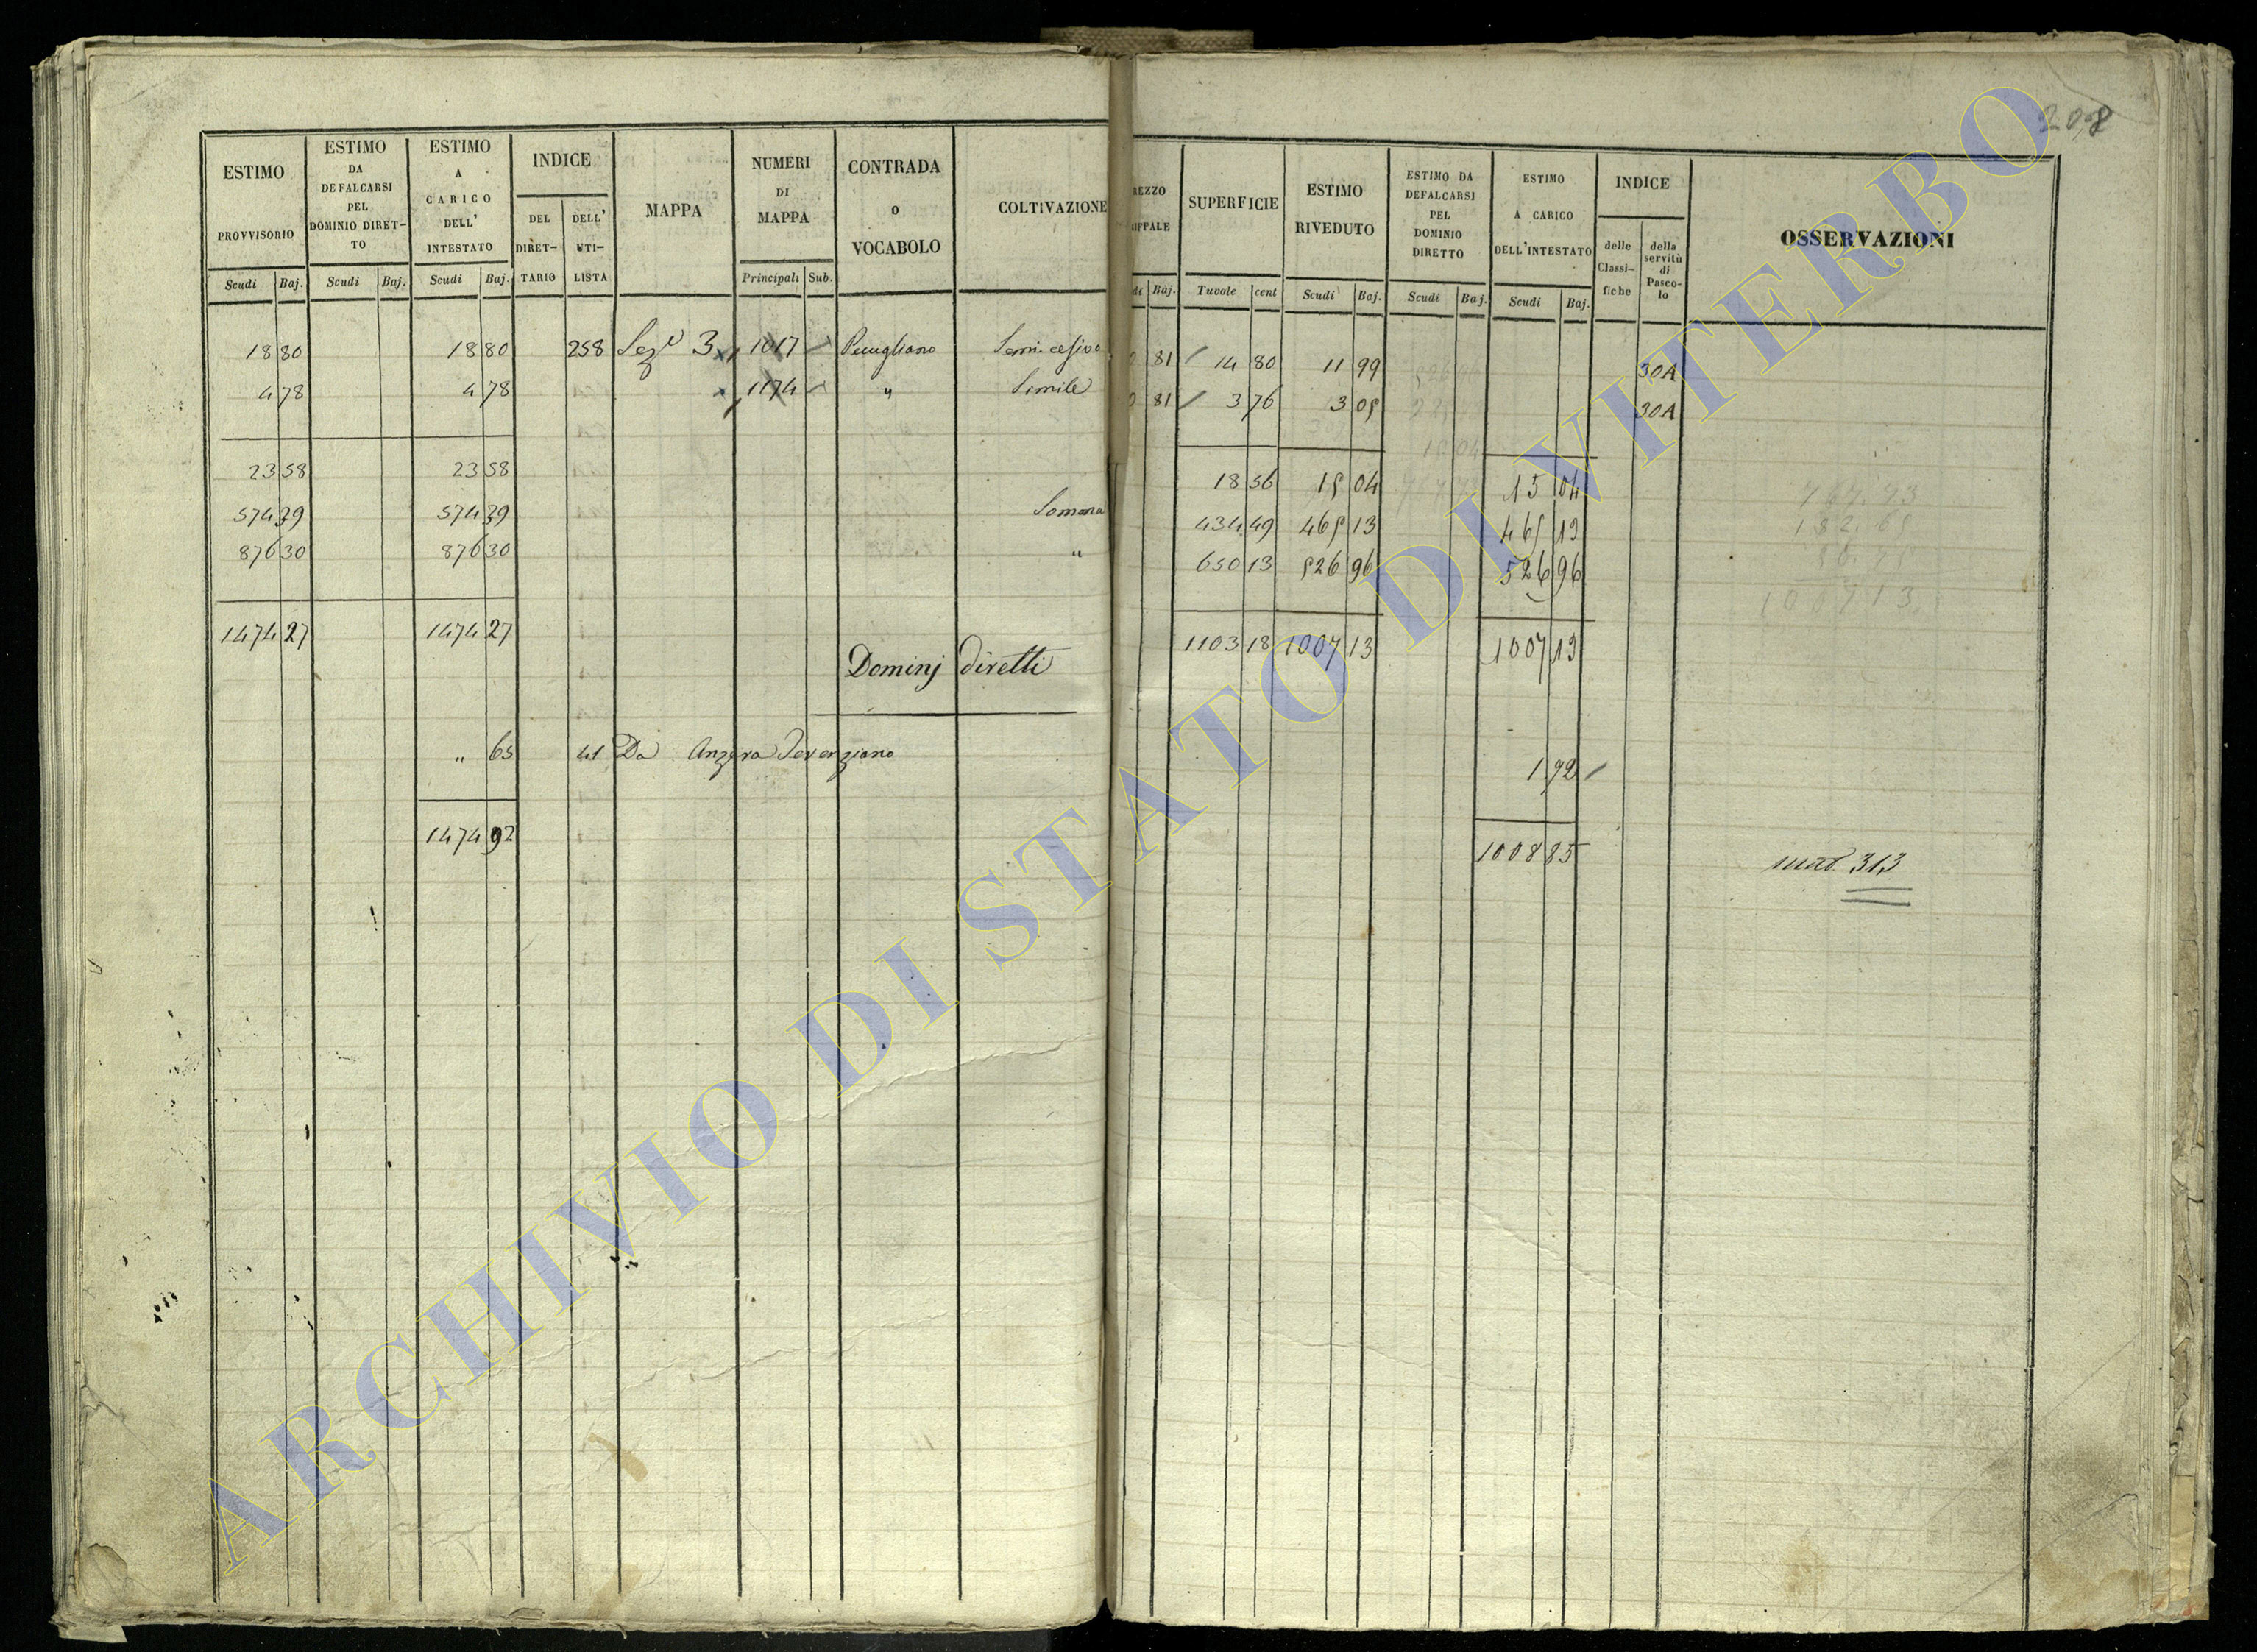 208
ESTIMO PROVVISORIO Scudi Baj.
ESTIMO DA DEFALCARSI PEL DOMINIO DIRET-TO Scudi Baj.
ESTIMO A CARICO DELL' INTESTATO Scudi Baj.
INDICE DEL DIRET-TARIO DELL' UTI-LISTA
MAPPA
NUMERI DI MAPPA Principali Sub.
CONTRADA o VOCABOLO
COLTIVAZIONE
REZZO IFFALE di Baj.
SUPERFICIE Tavole cent
ESTIMO RIVEDUTO Scudi Baj.
ESTIMO DA DEFALCARSI PEL DOMINIO DIRETTO Scudi Baj.
ESTIMO A CARICO DELL'INTESTATO Scudi Baj.
INDICE delle Classi-fiche della servitù di Pasco-lo
OSSERVAZIONI
18 80 18 80 258 Sez. 3 1017 Semi. 81 14 80 11 99 30A
4 78 4 78 1174 " Simile 81 3 76 3 05 30A
23 58 23 58 18 56 15 04 15 04
574 39 574 39 Somma 434 49 465 13 465 13
876 30 876 30 " 650 13 526 96 526 96
1474 27 1474 27 1103 18 1007 13 1007 13
Dominj diretti
" 65 41 Da 1 92
1474 92 1008 85
313
ARCHIVIO DI STATO DI VITERBO